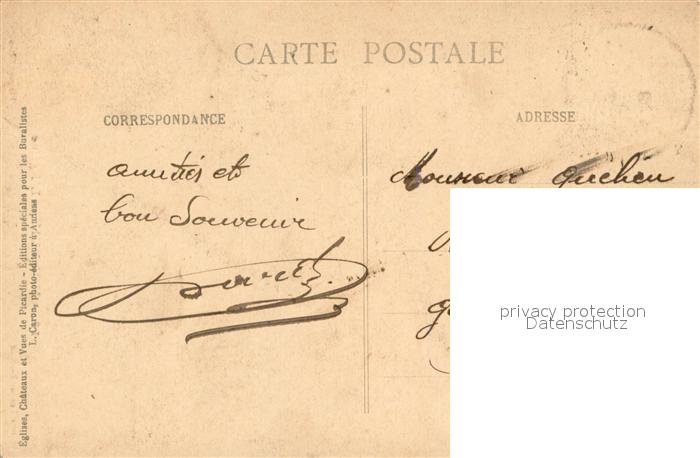 CARTE POSTALE
CORRESPONDANCE
ADRESSE
amitiés et
bon Souvenir
Monsieur
privacy protection
Datenschutz
Églises, Châteaux et Vues de Picardie - Éditions spéciales pour les Buralistes
L. Caron, photo-éditeur à Amiens